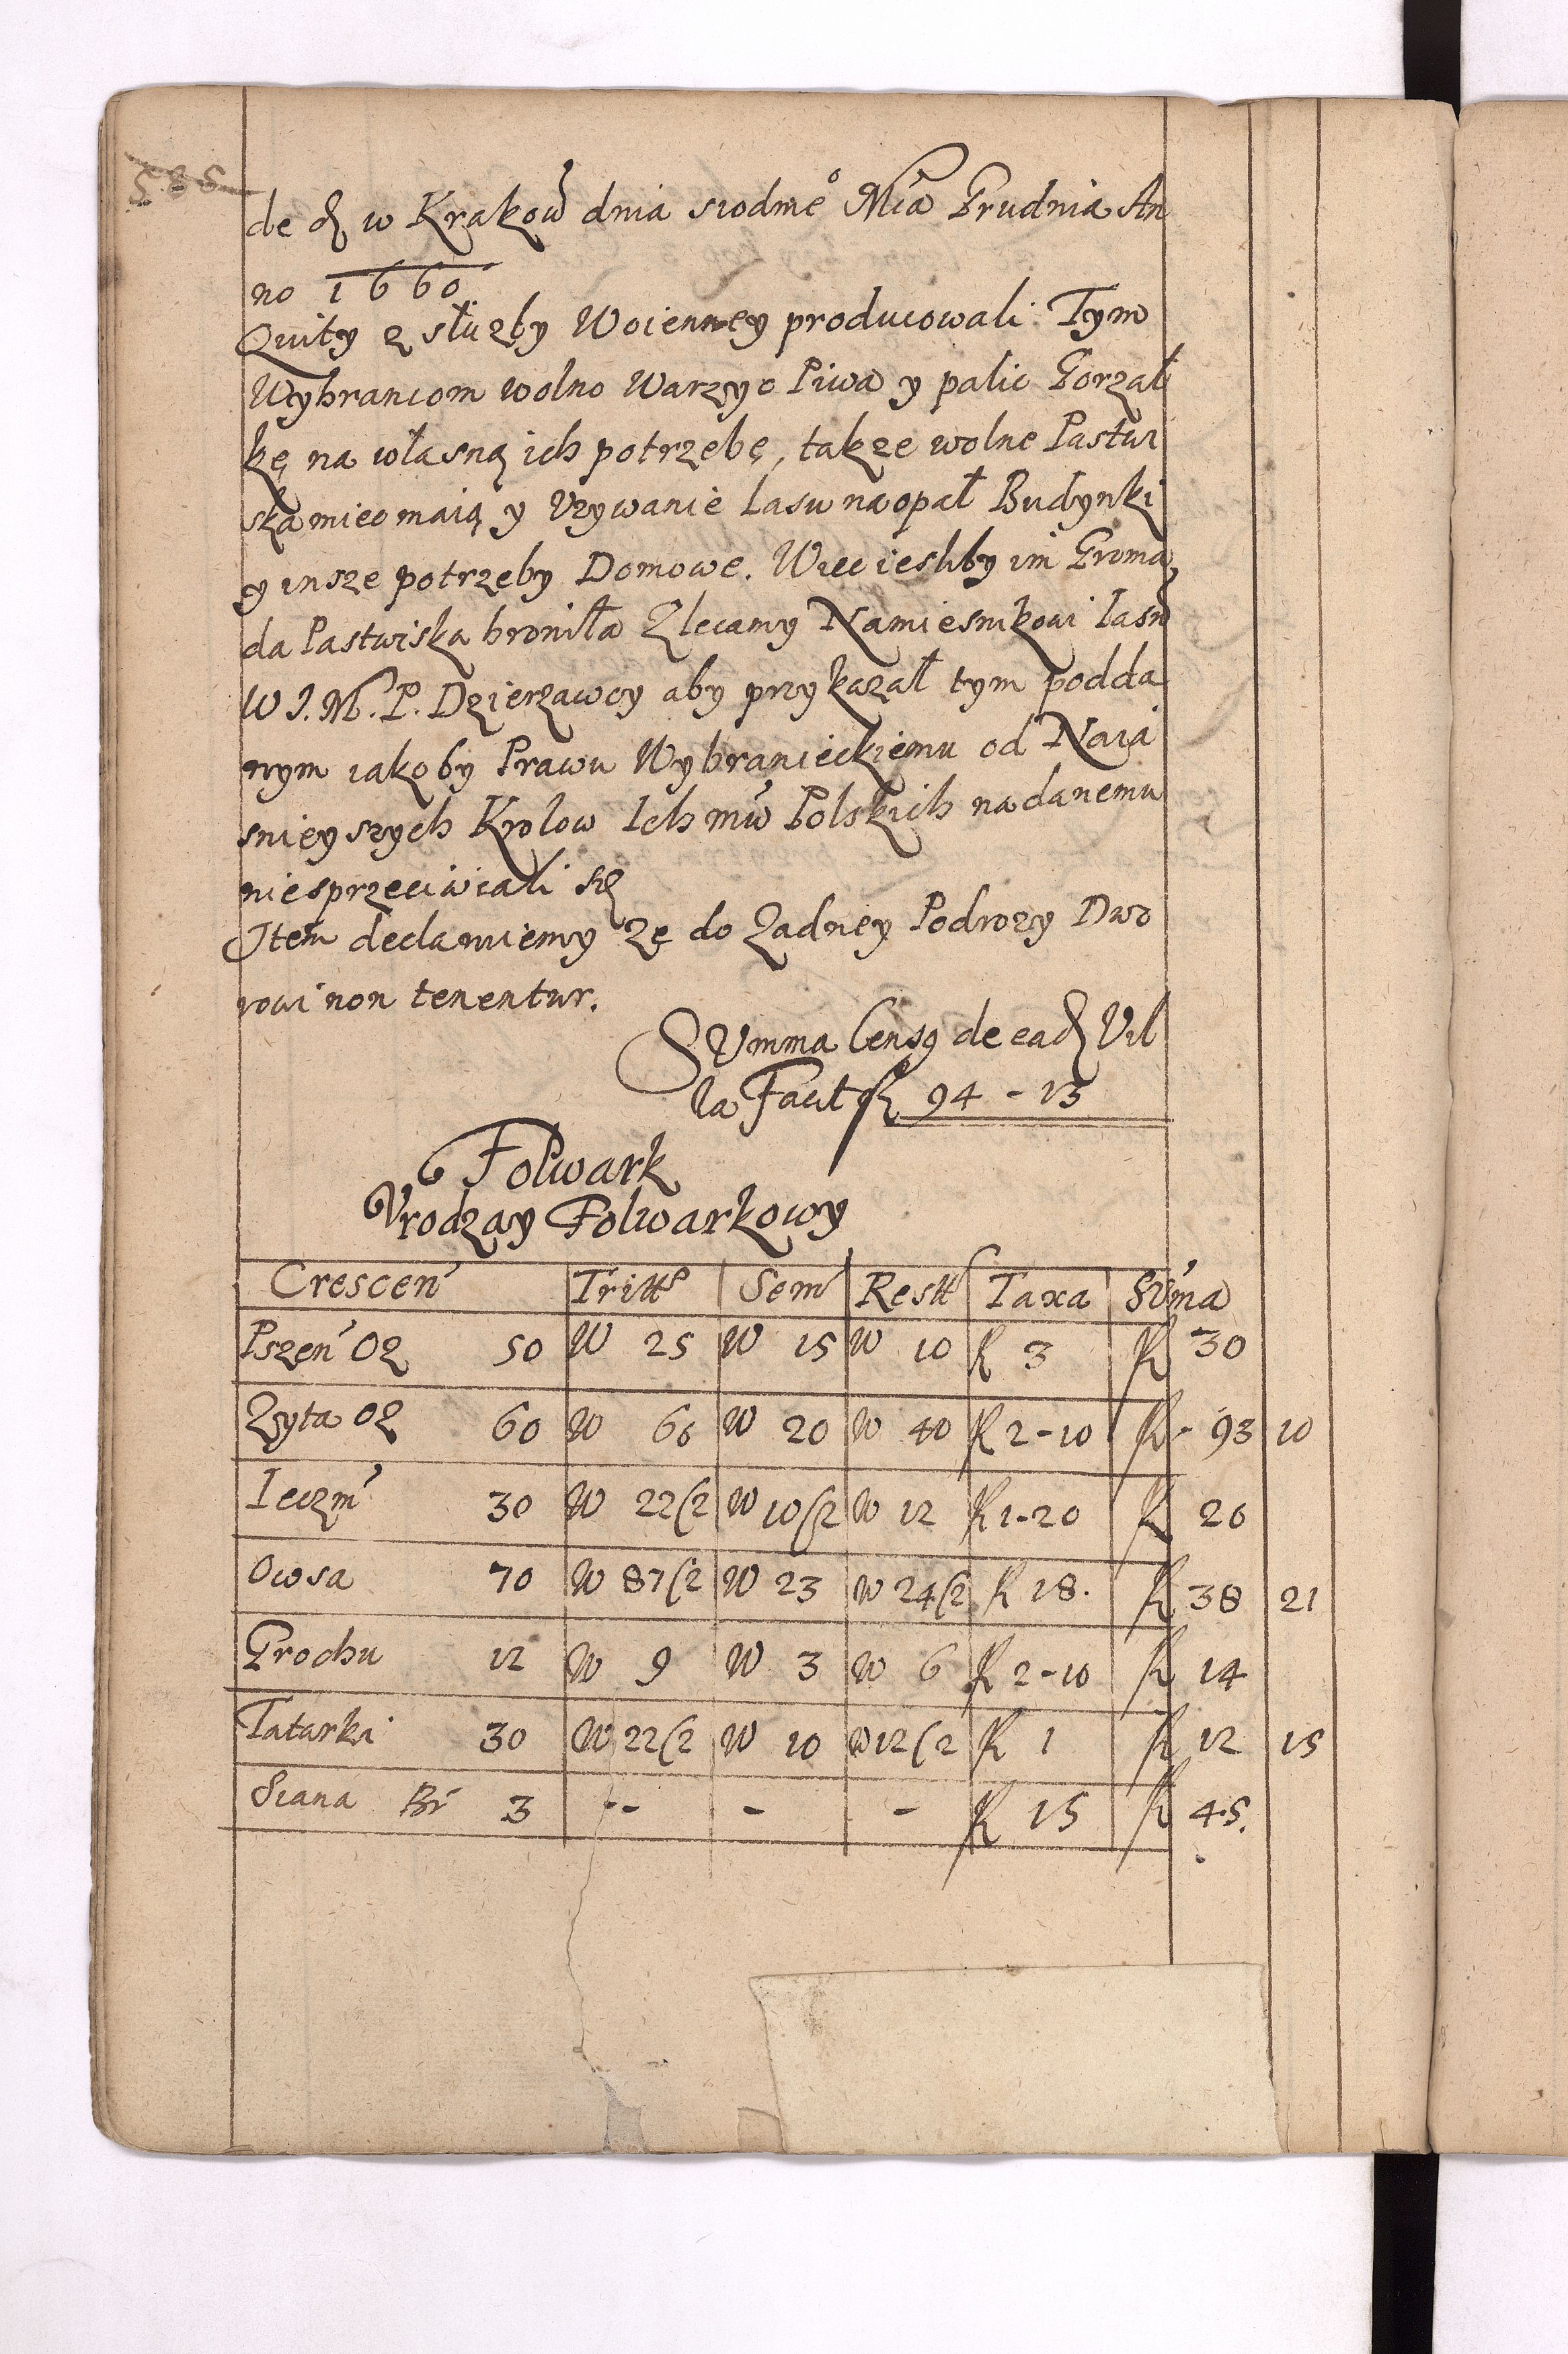 585
de d w Krakow dnia siodme° Mca Grudnia An
no 1660
Quity z słuzby Woienney producowali. Tym
Wybrancom wolno Warzyc Piwa y palic Gorzał
kę na własną ich potrzebę, takze wolne Pastwi
ska miec maią y Vzywanie lasu na opał Budynki
y insze potrzeby Domowe. Wiec iesliby im Groma
da Pastwiska broniła Zlecamy Namiesnikowi Iasn
W I. M. P. Dzierzawcy aby przykazał tym podda
nym iakoby Prawu Wybranieckiemu od Naia
snieyszych Krolow Ich mw Polskich nadanemu
niesprzeciwiali się
Item declaruiemy ze do Zadney Podrozy Dwo
rowi non tenentur.
SVmma Censq de ead Vil
la Facit fl 94 - 13
Folwark
Vrodzay Folwarkowy
Crescen Tritt Sem Restt Taxa SVma
Pszen Oz 50 W 25 W 15 W 10 fl 3 fl 30
Zyta Oz 60 W 60 W 20 W 40 fl 2-10 fl 93 10
Ieczm 30 W 22(2 W 10(2 W 12 fl 1-20 fl 20
Owsa 70 W 87(2 W 23 W 24(2 fl 18. fl 38 21
Grochu 12 W 9 W 3 W 6 fl 2-10 fl 14
Tatarki 30 W 22(2 W 10 W 12(2 fl 1 fl 12 15
Siana Br 3 -- - - fl 15 fl 45.